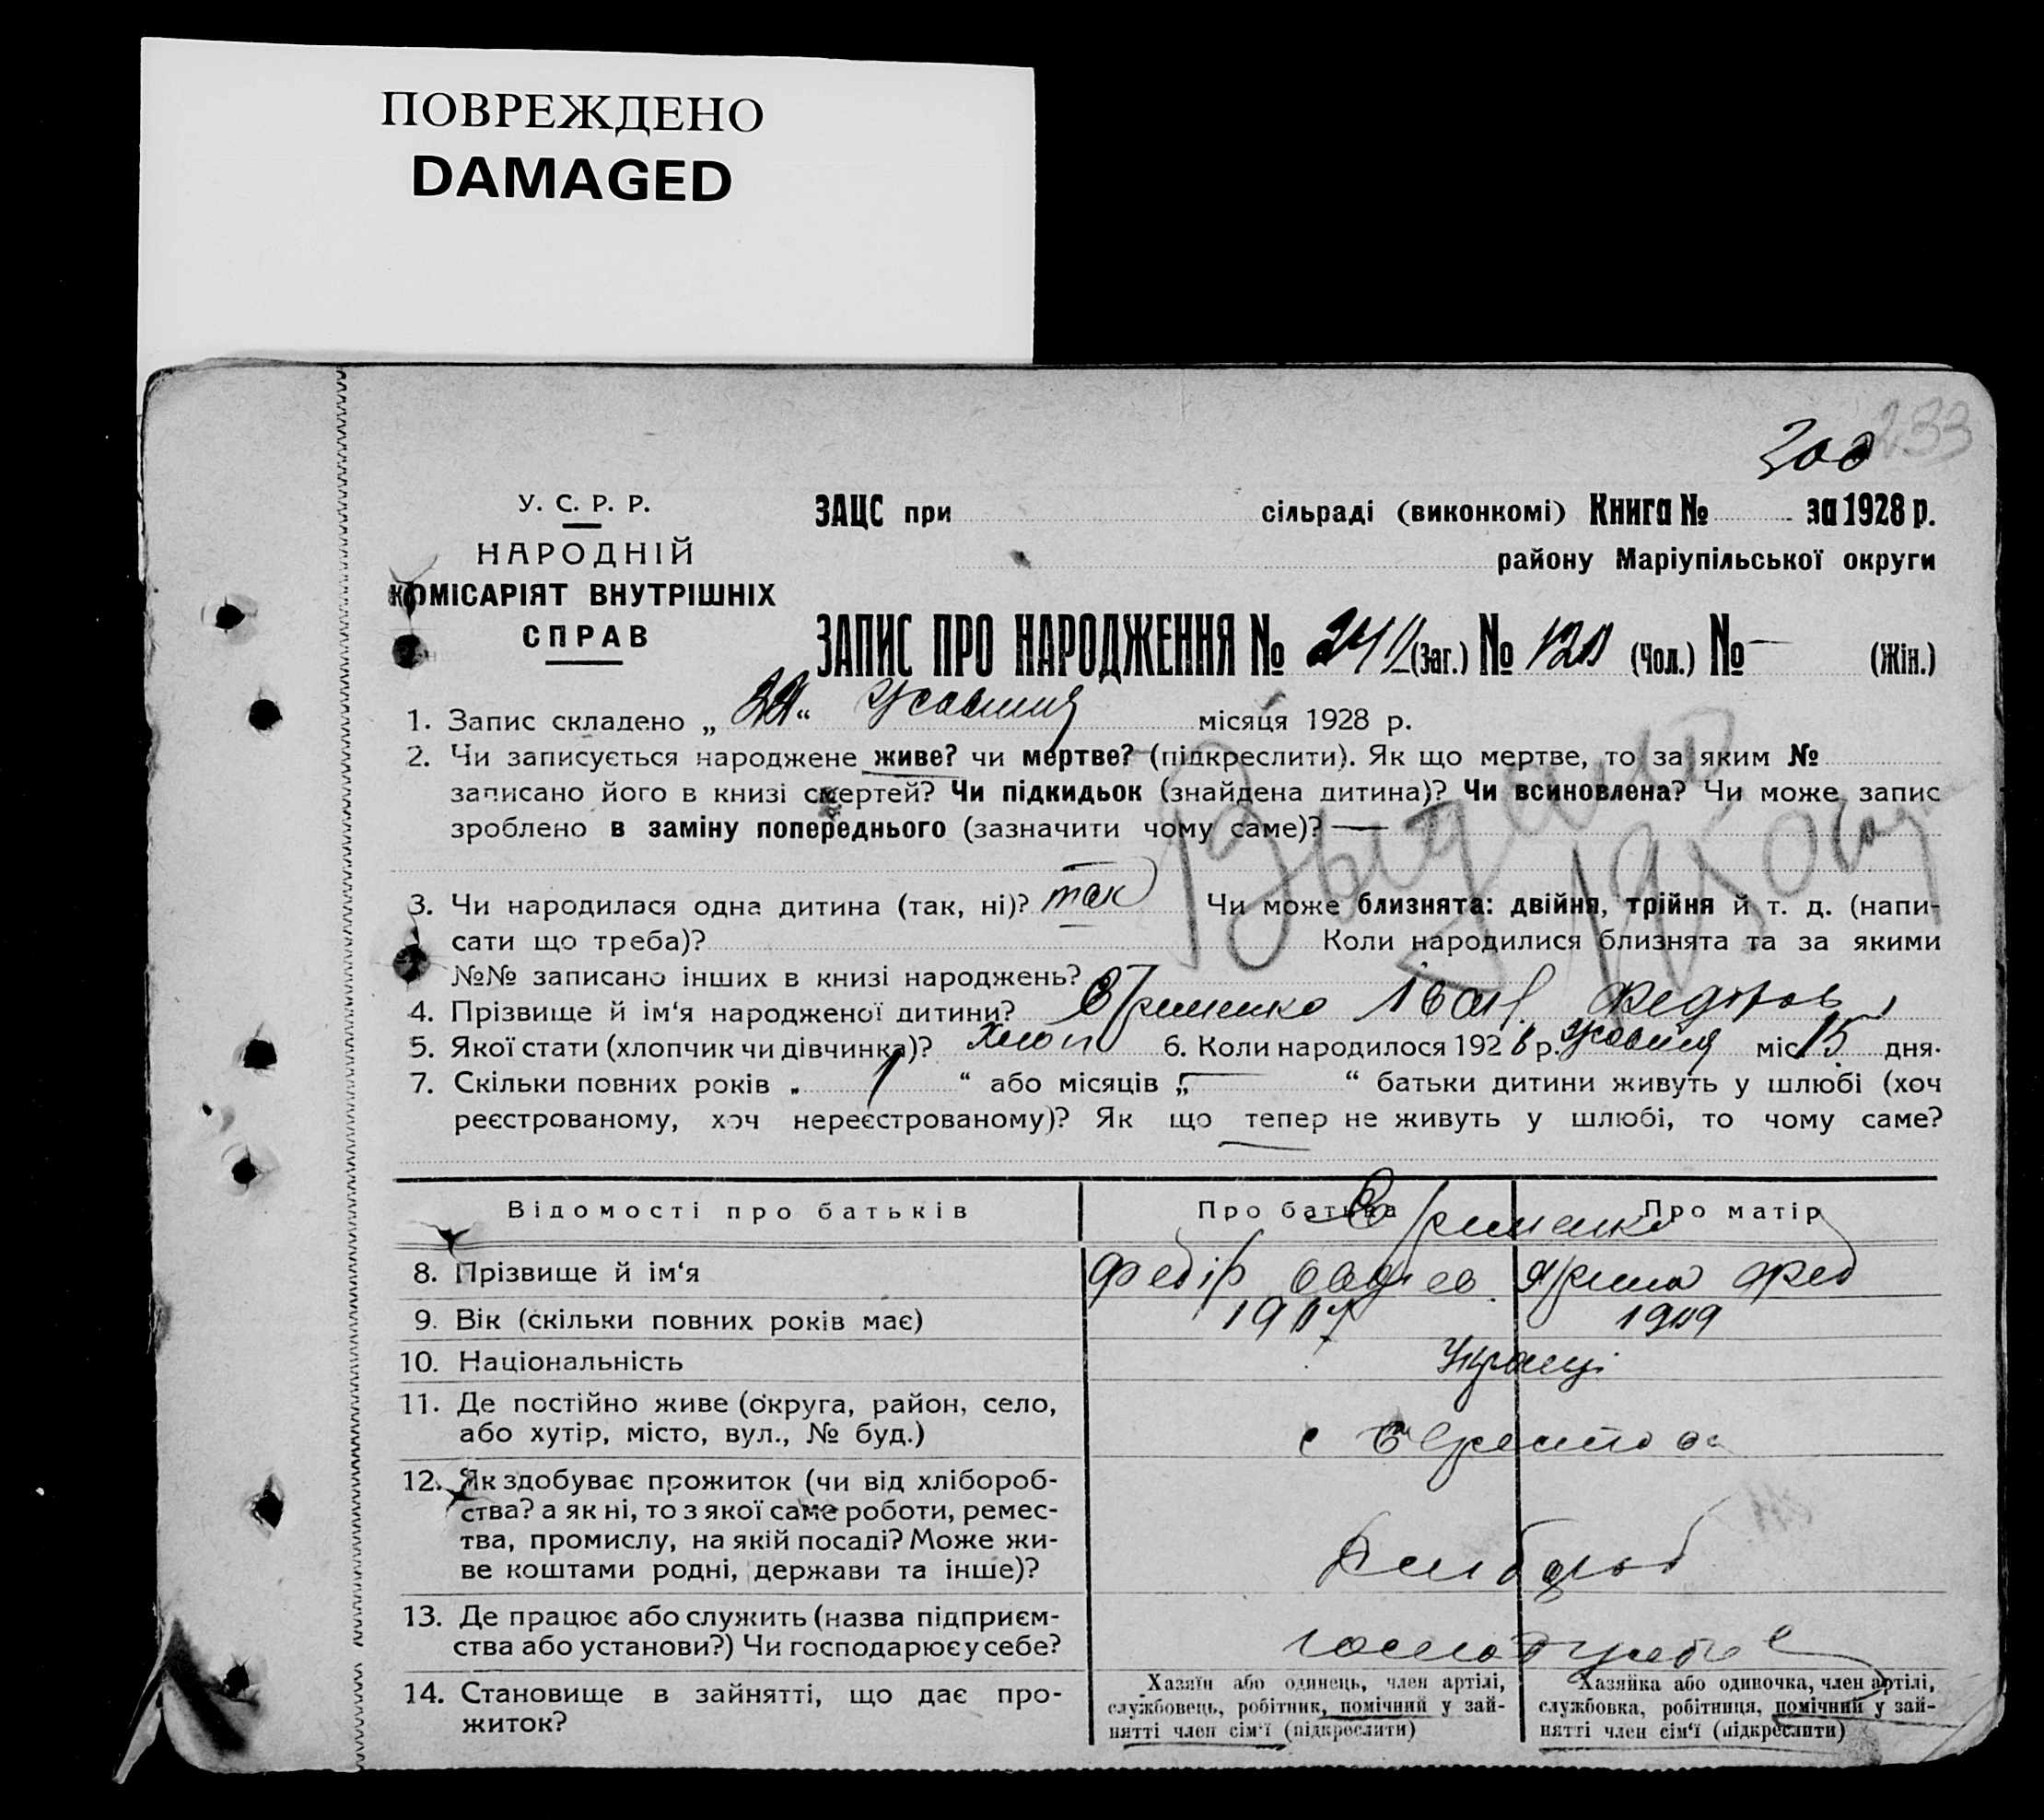 ПОВРЕЖДЕНО
DAMAGED
233
300
У. С. Р. Р.
НАРОДНІЙ
КОМІСАРІЯТ ВНУТРІШНІХ
СПРАВ
ЗАЦС при сільраді (виконкомі) Книга № за 1928 р.
району Маріупільської округи
ЗАПИС ПРО НАРОДЖЕННЯ № (Заг.) № (Чол.) № — (Жін.)
1. Запис складено „ 22 “ жовтня місяця 1928 р.
2. Чи записується народжене живе? чи мертве? (підкреслити). Як що мертве, то за яким №
записано його в книзі смертей? Чи підкидьок (знайдена дитина)? Чи всиновлена? Чи може запис
зроблено в заміну попереднього (зазначити чому саме)? —
3. Чи народилася одна дитина (так, ні)? так Чи може близнята: двійня, трійня й т. д. (напи-
сати що треба)? Коли народилися близнята та за якими
№№ записано інших в книзі народжень?
4. Прізвище й ім‘я народженої дитини? Єременко Іван Федоров
5. Якої статі (хлопчик чи дівчинка)? Хлоп 6. Коли народилося 1928 р. жовтня міс 15 дня.
7. Скільки повних років „ 1 “ або місяців „ — “ батьки дитини живуть у шлюбі (хоч
реєстрованому, хоч нереєстрованому)? Як що тепер не живуть у шлюбі, то чому саме?
Відомості про батьків Про батька Про матір
Єременко
8. Прізвище й ім‘я Федір Ярина Фед
9. Вік (скільки повних років має) 1907 1909
10. Національність Украінці
11. Де постійно живе (округа, район, село,
або хутір, місто, вул., № буд.) с Берестова
12. Як здобуває прожиток (чи від хлібороб-
ства? а як ні, то з якої саме роботи, ремес-
тва, промислу, на якій посаді? Може жи-
ве коштами родні, держави та інше)? Хлібороб
13. Де працює або служить (назва підприєм-
ства або установи?) Чи господарює у себе?
14. Становище в зайнятті, що дає про-
житок?
Хазяїн або одинець, член артілі,
службовець, робітник, помічний у зай-
нятті член сім‘ї (підкреслити)
Хазяйка або одиночка, член артілі,
службовка, робітниця, помічний у зай-
нятті член сім‘ї (підкреслити)